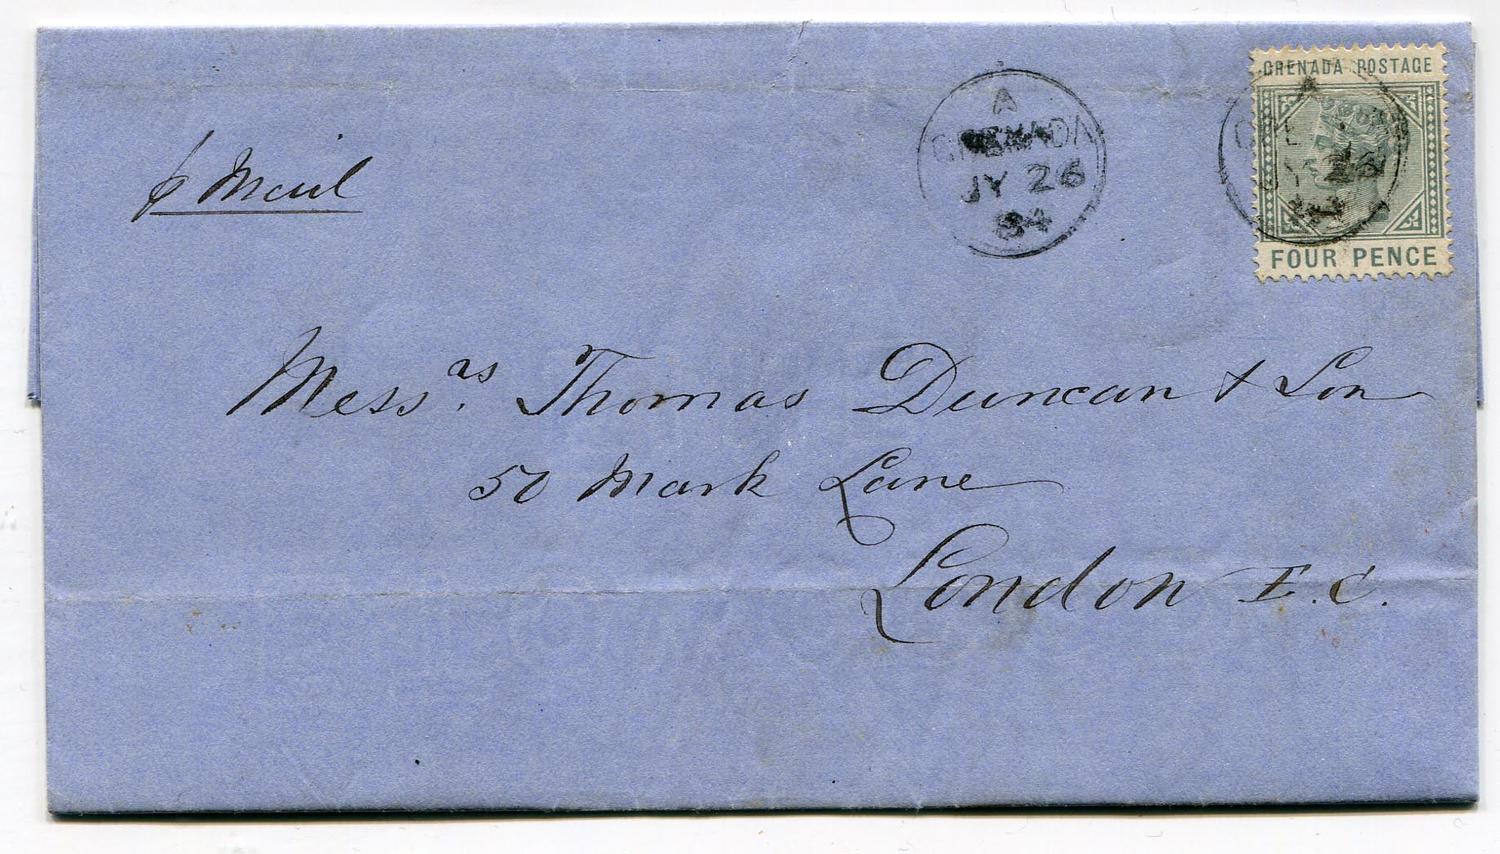 GRENADA POSTAGE
A
GRENADA
JY 26
84
A
JY 26
FOUR PENCE
p Mail
Messrs. Thomas Duncan & Son
50 Mark Lane
London E.C.